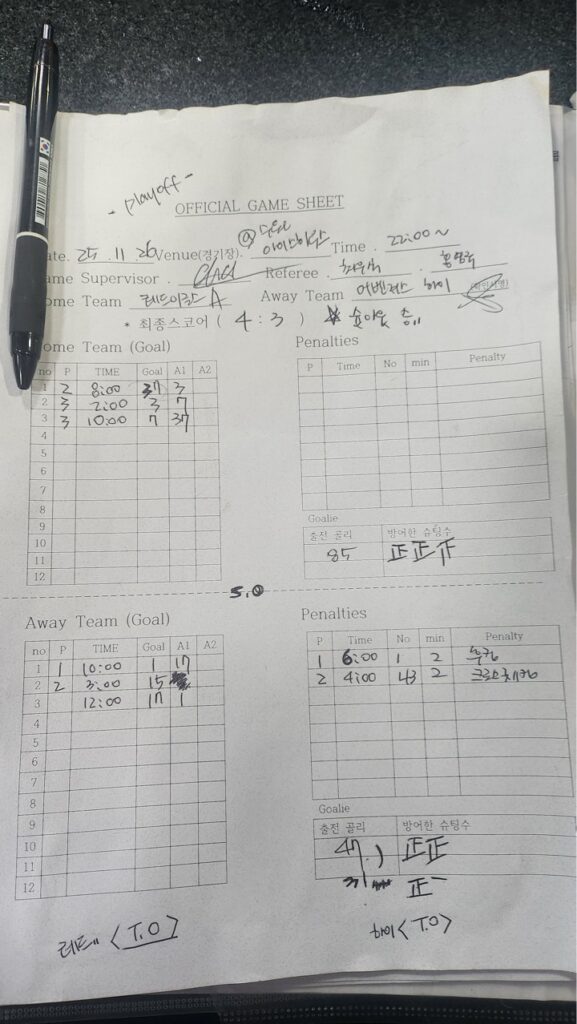 - Playoff -
OFFICIAL GAME SHEET
ate. 25 .11 .26 Venue(경기장). Time . 22:00~
ame Supervisor . Referee .
ome Team A Away Team 어벤져스 하이
* 최종스코어 ( 4 : 3 )
ome Team (Goal)
no P TIME Goal A1 A2
1 2 8:00 37 3
2 3 2:00 3 7
3 3 10:00 7 37
4
5
6
7
8
9
10
11
12
Penalties
P Time No min Penalty
Goalie
출전 골리 방어한 슈팅수
85 正 正
5.0
Away Team (Goal)
no P TIME Goal A1 A2
1 1 10:00 1 17
2 2 3:00 15
3 12:00 17 1
4
5
6
7
8
9
10
11
12
Penalties
P Time No min Penalty
1 6:00 1 2 후킹
2 4:00 43 2 크로스체킹
Goalie
출전 골리 방어한 슈팅수
47 正正
正
<T.O>
하이 <T.O>